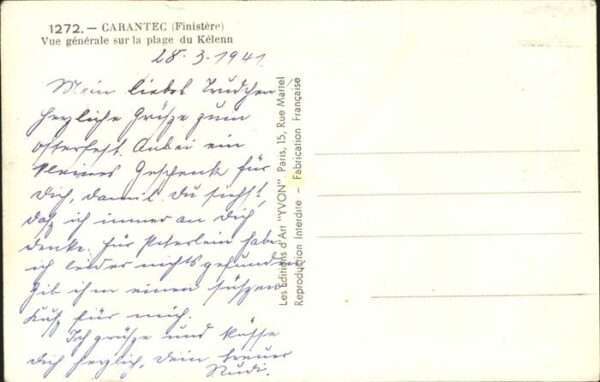 1272. — CARANTEC (Finistère)
Vue générale sur la plage du Kélenn
28.3.1941.
Mein liebes Trudchen
herzliche Grüße zum
Osterfest. Anbei ein
kleines Geschenk für
Dich, damit Du siehst,
daß ich immer an Dich
denke. Für Peterlein habe
ich leider nichts gefunden
Gib ihm einen süßen
Kuß für mich.
Ich grüße und küsse
Dich herzlich, Dein treuer
Rudi.
Les Editions d'Art "YVON" Paris, 15, Rue Martel
Reproduction Interdite — Fabrication Française